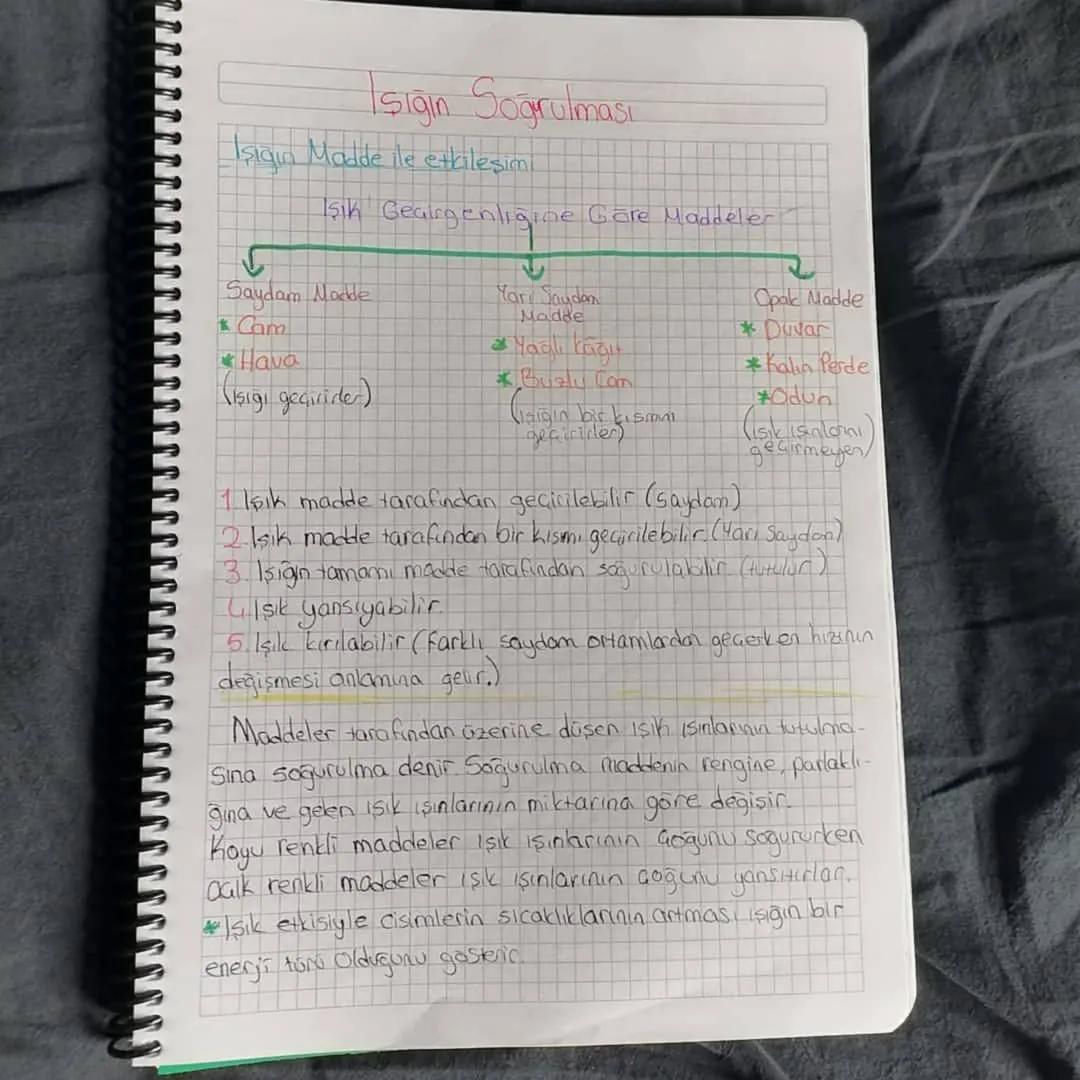 Işığın Soğrulması
Işığın Madde ile etkileşimi
Işık Geçirgenliğine Göre Maddeler
Saydam Madde
* Cam
* Hava
(ışığı geçirirler)
Yarı Saydam
Madde
* Yağlı kağıt
* Buzlu Cam
(ışığın bir kısmını
geçirirler)
Opak Madde
* Duvar
* Kalın Perde
* Odun
(ışık ışınlarını
geçirmeyen)
1. Işık madde tarafından geçirilebilir (saydam)
2. Işık madde tarafından bir kısmı geçirilebilir. (Yarı Saydam)
3. Işığın tamamı madde tarafından soğurulabilir (tutulur)
4. Işık yansıyabilir.
5. Işık kırılabilir (farklı saydam ortamlardan geçerken hızının
değişmesi anlamına gelir.)
Maddeler tarafından üzerine düşen ışık ışınlarının tutulma-
sına soğurulma denir. Soğurulma maddenin rengine, parlaklı-
ğına ve gelen ışık ışınlarının miktarına göre değişir.
Koyu renkli maddeler ışık ışınlarının çoğunu soğururken
açık renkli maddeler ışık ışınlarının çoğunu yansıtırlar.
* Işık etkisiyle cisimlerin sıcaklıklarının artması ışığın bir
enerji türü olduğunu gösterir.